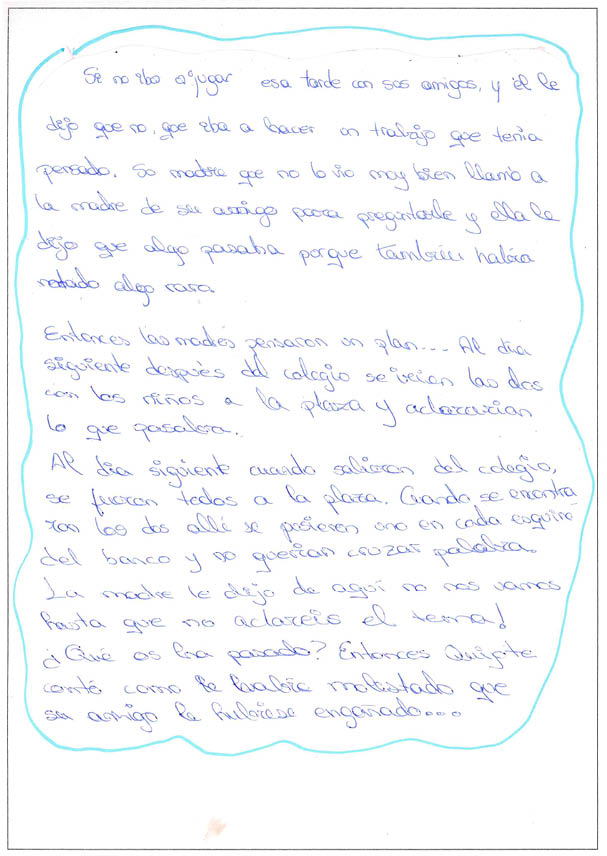 Si no iba a jugar esa tarde con sus amigos, y él le
dijo que no, que iba a hacer un trabajo que tenia
pensado. Su madre que no lo vio muy bien llamó a
la madre de su amigo para preguntarle y ella le
dijo que algo pasaba porque también había
notado algo raro.
Entonces las madres pensaron un plan... Al día
siguiente después del colegio se veían las dos
con los niños a la plaza y aclararian
lo que pasaba.
Al día siguiente cuando salieron del colegio,
se fueron todos a la plaza. Cuando se encontra
ron los dos allí se pusieron uno en cada esquina
del banco y no querían cruzar palabra.
La madre le dijo de aquí no nos vamos
hasta que no aclareis el tema!
¿Qué os ha pasado? Entonces Quijote
contó como le había molestado que
su amigo le hubiese engañado...